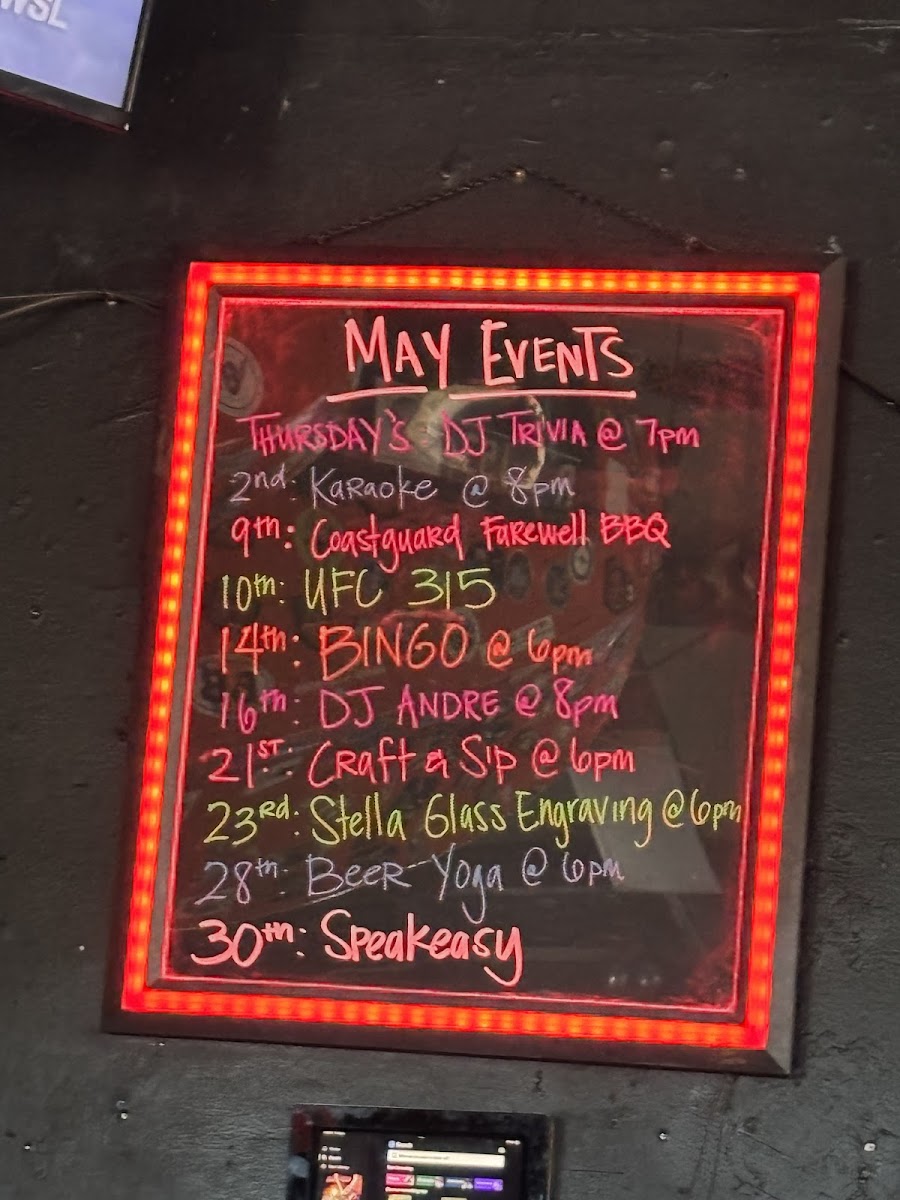 WSL
MAY EVENTS
THURSDAY'S DJ TRIVIA @ 7pm
2nd: KARAOKE @ 8pm
9th: Coastguard Farewell BBQ
10th: UFC 315
14th: BINGO @ 6pm
16th: DJ ANDRE @ 8pm
21ST: CRAFT & SIP @ 6pm
23RD: Stella Glass Engraving @ 6pm
28th: BEER Yoga @ 6pm
30th: Speakeasy